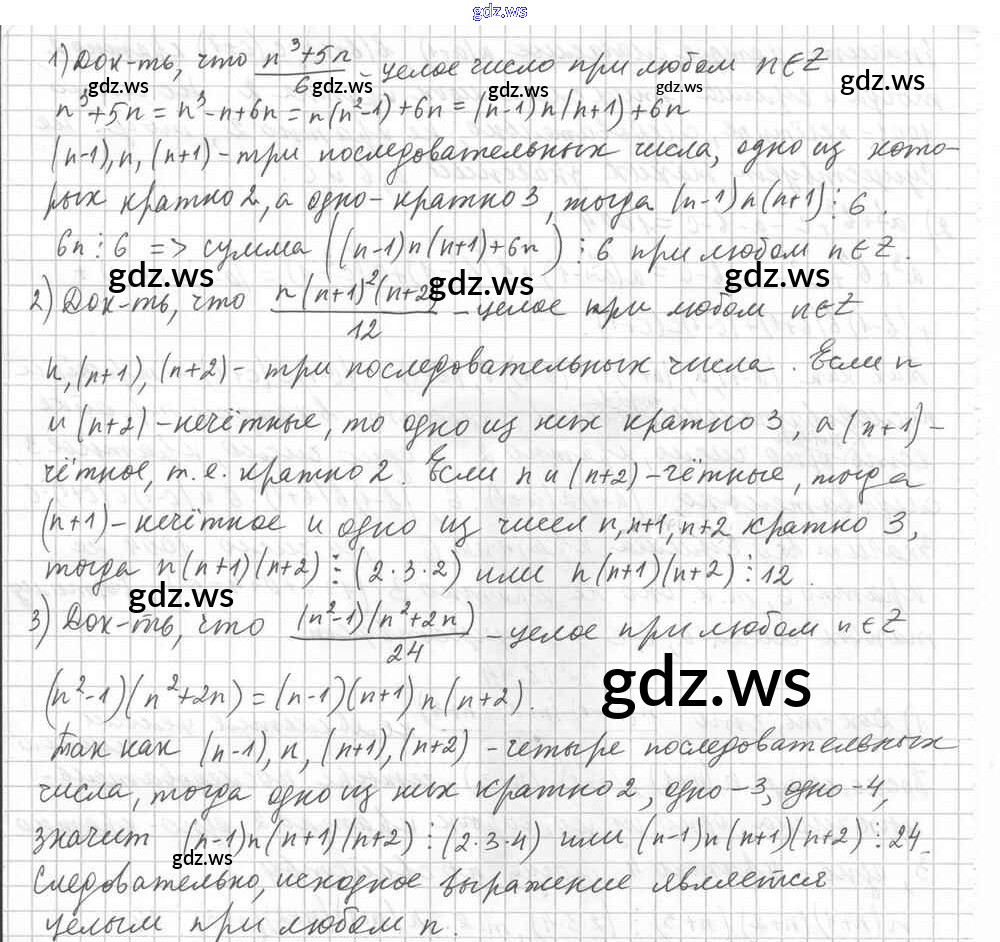 gdz.ws
1) Док-ть, что (n³+5n)/6 - целое число при любом n∈Z
gdz.ws gdz.ws gdz.ws gdz.ws
n³+5n = n³-n+6n = n(n²-1)+6n = (n-1)n(n+1)+6n
(n-1), n, (n+1) - три последовательных числа, одно из кото-
рых кратно 2, а одно - кратно 3, тогда (n-1)n(n+1)⋮6.
6n⋮6 => сумма ((n-1)n(n+1)+6n)⋮6 при любом n∈Z.
gdz.ws gdz.ws gdz.ws
2) Док-ть, что n(n+1)²(n+2)/12 - целое при любом n∈Z
n, (n+1), (n+2) - три последовательных числа. Если n
и (n+2) - нечётные, то одно из них кратно 3, а (n+1) -
чётное, т.е. кратно 2. Если n и (n+2) - чётные, тогда
(n+1) - нечётное и одно из чисел n, n+1, n+2 кратно 3,
тогда n(n+1)(n+2)⋮(2·3·2) или n(n+1)(n+2)⋮12.
gdz.ws
3) Док-ть, что (n²-1)(n²+2n)/24 - целое при любом n∈Z
gdz.ws
(n²-1)(n²+2n) = (n-1)(n+1)n(n+2).
Так как (n-1), n, (n+1), (n+2) - четыре последовательных
числа, тогда одно из них кратно 2, одно - 3, одно - 4,
значит (n-1)n(n+1)(n+2)⋮(2·3·4) или (n-1)n(n+1)(n+2)⋮24.
gdz.ws
Следовательно, исходное выражение является
целым при любом n.